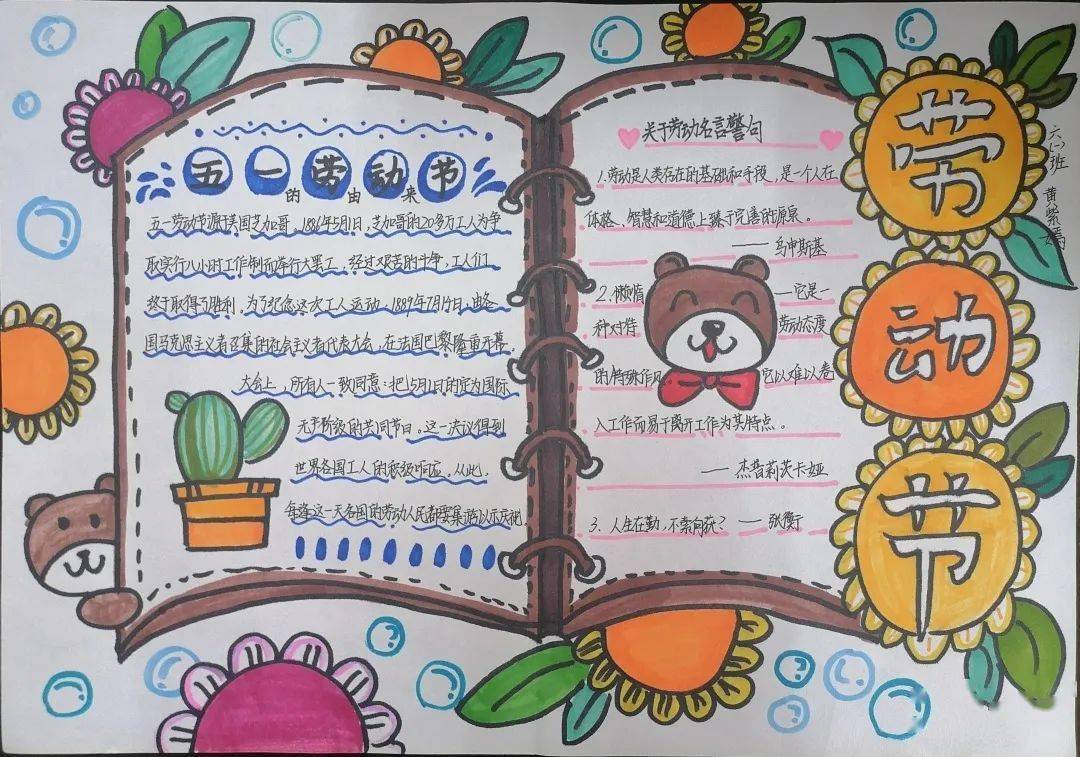 五一劳动节
的由来
五一劳动节源于美国芝加哥,1886年5月1日,芝加哥的20多万工人为争
取实行八小时工作制而举行大罢工,经过艰苦的斗争,工人们
终于取得了胜利,为了纪念这次工人运动,1889年7月14日,由各
国马克思主义者召集的社会主义者代表大会,在法国巴黎隆重开幕
大会上,所有人一致同意:把5月1日的定为国际
无产阶级的共同节日。这一决议得到
世界各国工人的积极响应。从此,
每逢这一天各国的劳动人民都要集 以示庆祝.
关于劳动名言警句
1.劳动是人类存在的基础和手段,是一个人在
体格、智慧和道德上臻于完善的源泉。
——乌申斯基
2.懒惰 —它是一
种对待 劳动态度
的特殊作风 它以难以卷
入工作而易于离开工作为其特点。
——杰普莉茨卡娅
3.人生在勤,不索何获?——张衡
劳
动
节
六(一)班 黄紫嫣